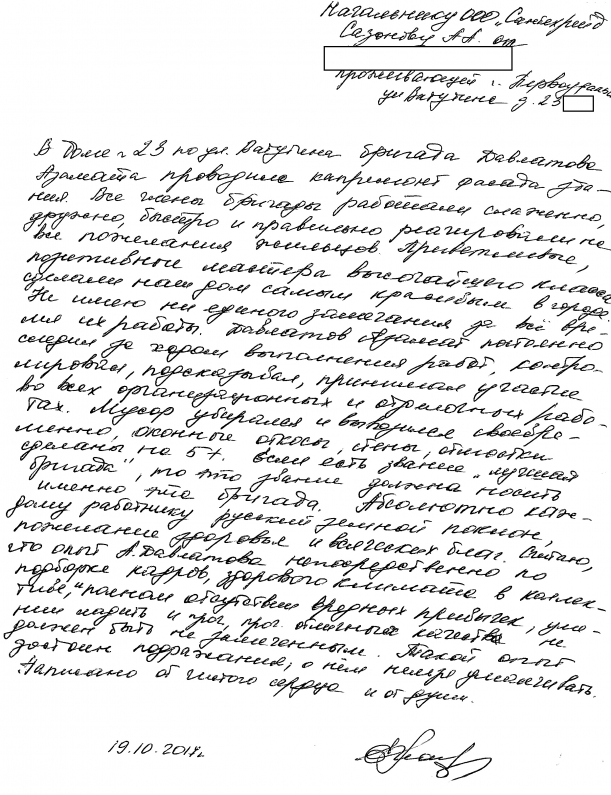 Начальнику ООО „Сантехрейд
Сазонову А.А. от
проживающей г. Первоуральск
ул Ватутина д. 23
В доме № 23 по ул. Ватутина бригада Давлатова
Азамата проводила капремонт фасада зда-
ния. Все члены бригады работали слаженно,
дружно, быстро и правильно реагировали на
все пожелания жильцов. Приветливые,
позитивные мастера высочайшего класса
сделали наш дом самым красивым в городе.
Не имею ни единого замечания за всё вре-
мя их работы. Давлатов Азамат постоянно
следил за ходом выполнения работ, контро-
лировал, подсказывал, принимал участие
во всех организационных и отделочных рабо-
тах. Мусор убирался и вывозился своевре-
менно, оконные откосы, стены, отмостки
сделаны на 5+. Если есть звание „лучшая
бригада", то это звание должна носить
именно эта бригада. Абсолютно каж-
дому работнику русский земной поклон,
пожелание здоровья и всяческих благ. Считаю,
что опыт А.Давлатова непосредственно по
подборке кадров, здорового климата в коллек-
тиве, полном отсутствии вредных привычек, уме-
нии ладить и проч, проч. отличных качеств не
должен быть не замеченным. Такой опыт
достоин подражания, о нём нельзя умалчивать.
Написано от чистого сердца и от души.
19.10.2017г.